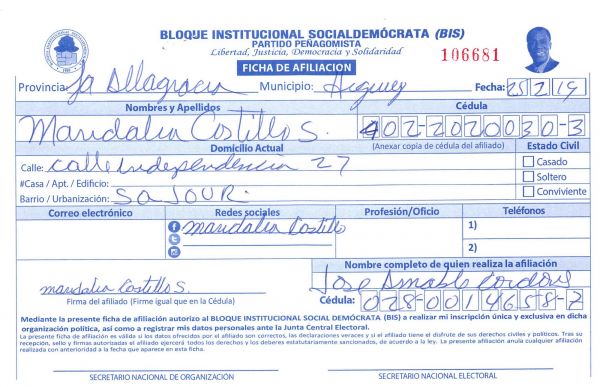 BLOQUE INSTITUCIONAL SOCIALDEMÓCRATA (BIS)
PARTIDO PEÑAGOMISTA
Libertad, Justicia, Democracia y Solidaridad
106681
FICHA DE AFILIACION
Provincia: La Altagracia Municipio: Higuey Fecha: 25/2/19
Nombres y Apellidos Cédula
Mandalia Castillo S. 402-2020030-3
Domicilio Actual (Anexar copia de cédula del afiliado) Estado Civil
Calle: Calle independencia 27 Casado
#Casa / Apt. / Edificio: Soltero
Barrio / Urbanización: SAJOUR. Conviviente
Correo electrónico Redes sociales Profesión/Oficio Teléfonos
mandalia Castillo 1)
2)
Nombre completo de quien realiza la afiliación
mandalia Castillo S. Jose Amable Cordova
Firma del afiliado (Firme igual que en la Cédula) Cédula: 028-0014658-2
Mediante la presente ficha de afiliación autorizo al BLOQUE INSTITUCIONAL SOCIAL DEMÓCRATA (BIS) a realizar mi inscripción única y exclusiva en dicha
organización política, así como a registrar mis datos personales ante la Junta Central Electoral.
La presente ficha de afiliación es válida si los datos ofrecidos por el afiliado son correctos, las declaraciones veraces y si el afiliado tiene el disfrute de sus derechos civiles y políticos. Tras su
recepción, sello y firmas autorizadas el afiliado ejercerá todos los derechos y los deberes estatutariamente sancionados, de acuerdo a la ley. La presente afiliación anula cualquier afiliación
realizada con anterioridad a la fecha que aparece en esta ficha.
SECRETARIO NACIONAL DE ORGANIZACIÓN SECRETARIO NACIONAL ELECTORAL